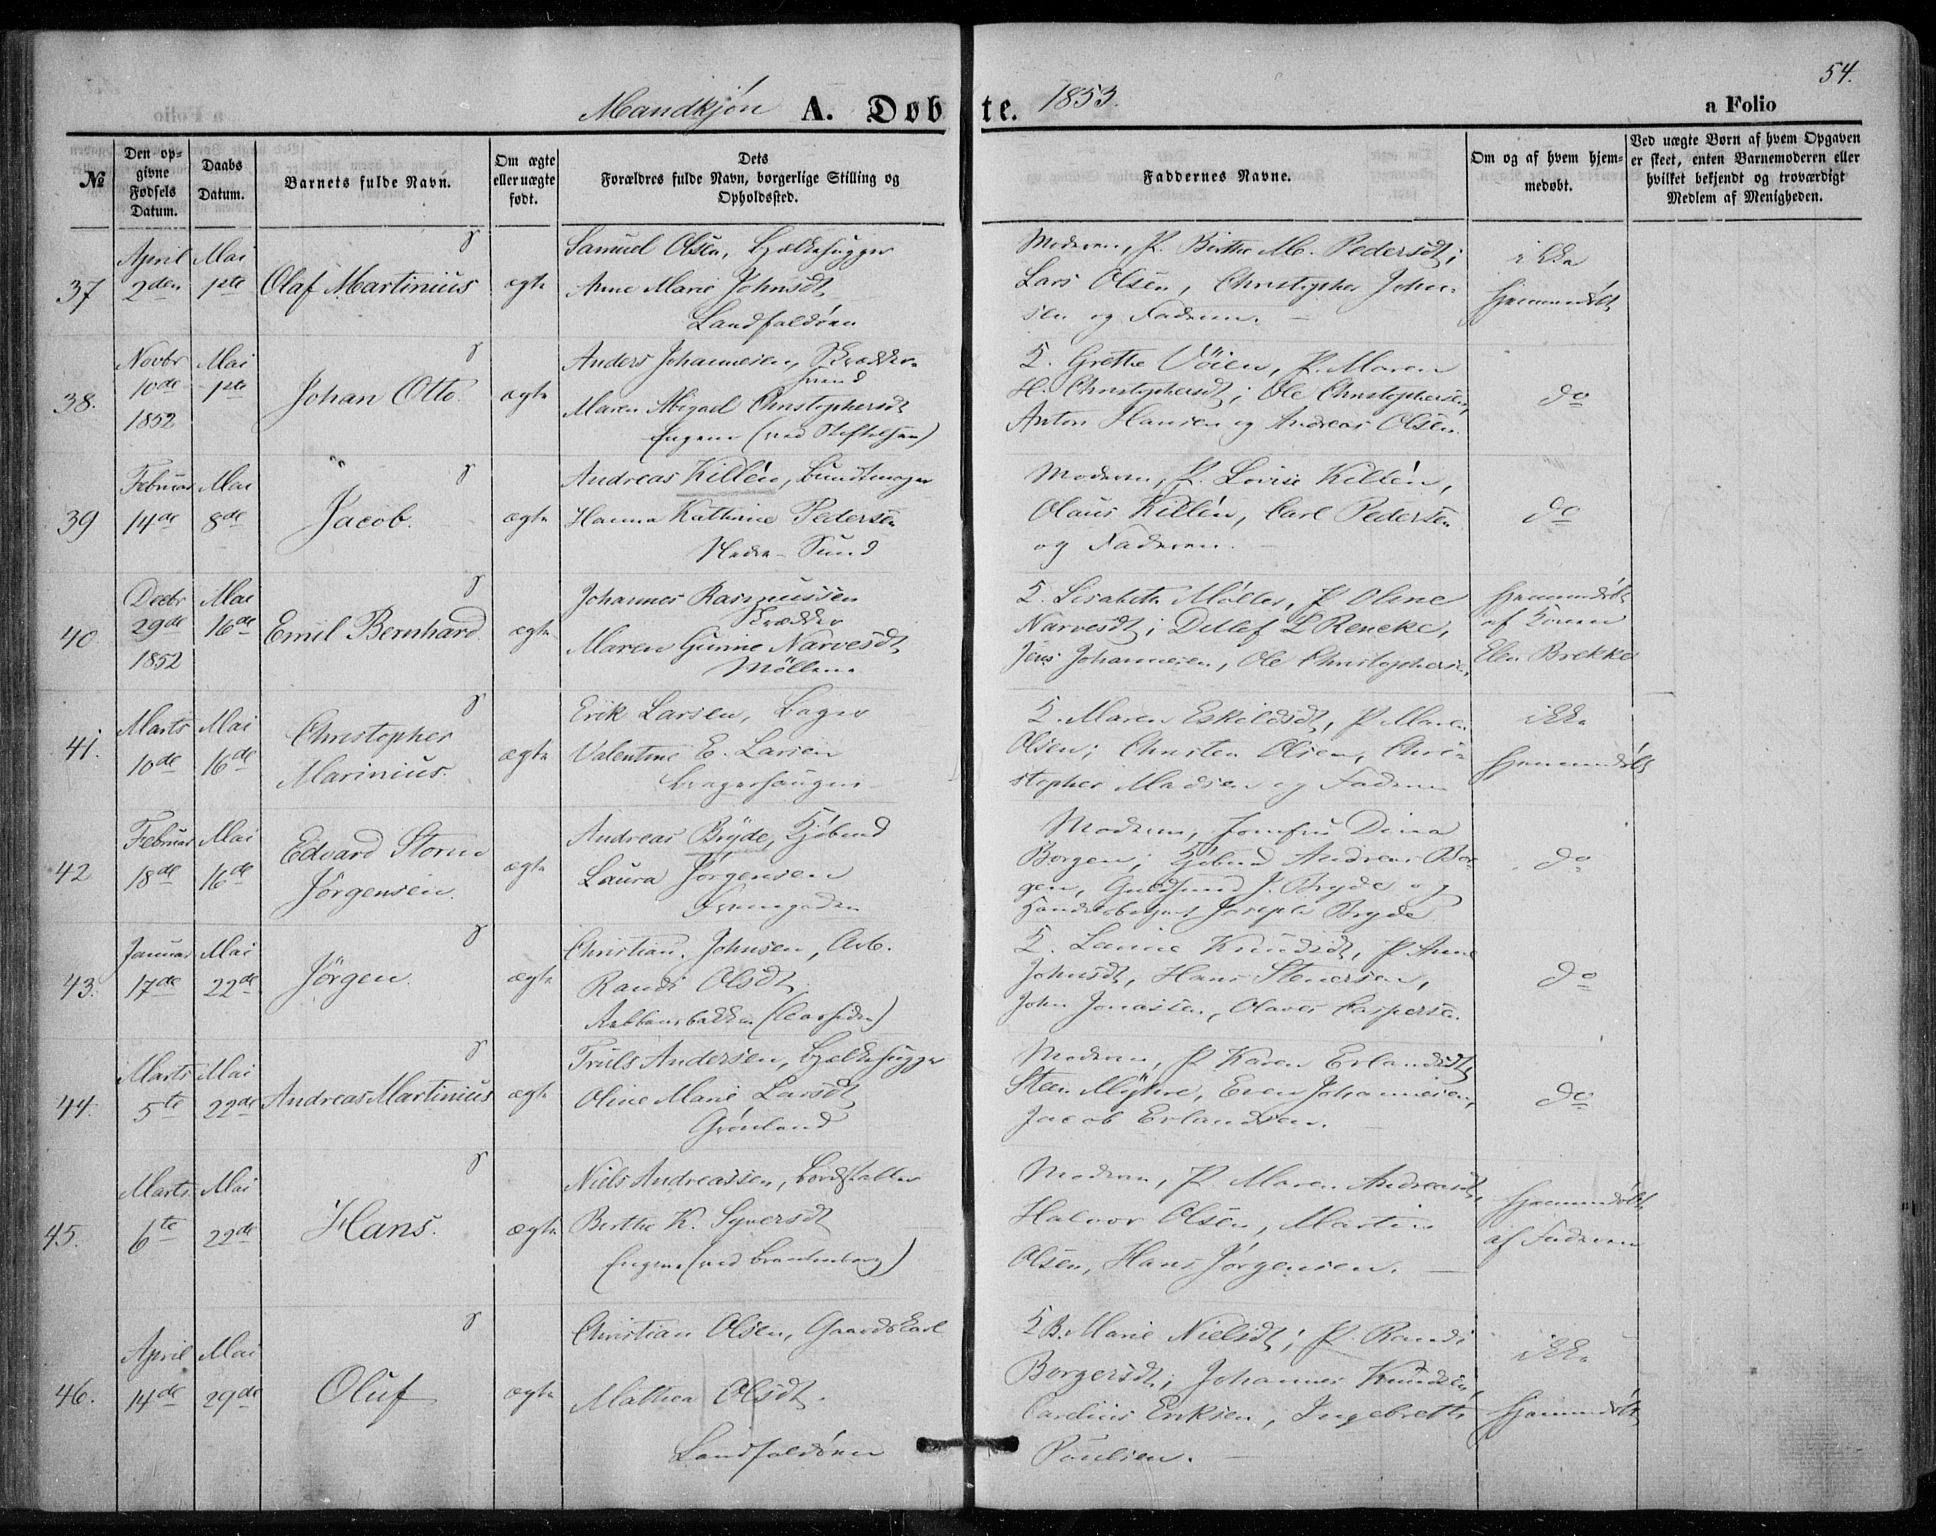 Mandkjøn A. Døbte. 1853.
54.
a Folio
No
Den opgivne Fødsels Datum.
Daabs Datum.
Barnets fulde Navn.
Om ægte eller uægte født.
Dets Forældres fulde Navn, borgerlige Stilling og Opholdssted.
Faddernes Navne.
Om og af hvem hjemmedøbt.
Ved uægte Børn af hvem Opgaven er skeet, enten Barnemoderen eller hvilket bekjendt og troværdigt Medlem af Menigheden.
37
April 2den
Mai 1ste
Olaf Martinius
ægte
Samuel Olsen, Bjelkehugger
Anne Marie Johnsdt
Landfaldøen
Moderen, P. Birthe M. Pedersdt;
Lars Olsen, Christopher Johnsen og Faderen.
ikke hjemmedøbt
38.
Novbr 10de 1852
Mai 1ste
Johan Otto.
ægte
Anders Johannesen, Skræddersvend
Maren Abigael Christophersdt
Engene (ved Stiftelsen)
K. Grethe Vöien, P. Maren
H. Christophersdt; Ole Christophersen,
Anton Hansen og Andreas Olsen.
do
39
Februar 14de
Mai 8de
Jacob.
ægte
Andreas Killén, Bundtmager
Hanna Kathrine Pedersen
Nedre-Sund
Moderen, P. Lovise Killén,
Olaus Killén, Carl Pedersen
og Faderen.
do
40
Decbr 29de 1852
Mai 16de
Emil Bernhard.
ægte
Johannes Rasmussen
Skrædder
Maren Gunine Narvesdt
Möllene
K. Lisabeth Møller, P. Oline
Narvesdt; Detlef L Rencke,
Jens Johannesen, Ole Christophersen,
hjemmedøbt
af Konen
Elen Brekke
41.
Marts 10de
Mai 16de
Christopher
Marinius.
ægte
Erik Larsen, Bager
Valentine E. Larsen
Bragerhaugen
K. Maren Eskildsdt, P. Maren
Olsen; Christen Olsen, Christopher Madsen og Faderen
ikke
hjemmedøbt
42
Februar 18de
Mai 16de
Edvard Storm
Jörgensen.
ægte
Andreas Bryde, Kjöbmd
Laura Jörgensen
Moderen, Jomfru Dina
Borgen; Kjöbmd Andreas Borgen, J. Bryde og
Joseph Bryde
do
43.
Januar 17de
Mai 22de
Jörgen.
ægte
Christian Johnsen, Arb.
Randi Olsdt.
K. Knudsdt, P. Anne
Johnsdt, Hans Stenersen,
John Jonassen, Olaves Caspersen.
do
44.
Marts 5te
Mai 22de
Andreas Martinius
ægte
Truls Andersen, Bjelkehugger
Oline Marie Larsdt
Grönland
Moderen, P. Karen Erlandsdt,
Sten Myhre, Even Johannesen,
Jacob Erlandsen.
do
45.
Marts 6te
Mai 22de
Hans.
ægte
Niels Andreassen, Bordstabler
Berthe K. Syversdt
Engene (ved Brandenborg)
Moderen, P. Maren Andreasdt,
Halvor Olsen, Martin
Olsen, Hans Jörgensen.
hjemmedøbt
af Faderen
46.
April 14de
Mai 29de
Oluf
ægte
Christian Olsen, Gaardskarl
Mathea Olsdt.
Landfaldøen
K. B. Marie Nielsdt; P. Randi
Borgersdt; Johannes Knudsen,
Carelius Eriksen, Ingebreth
Poulsen.
ikke
hjemmedøbt